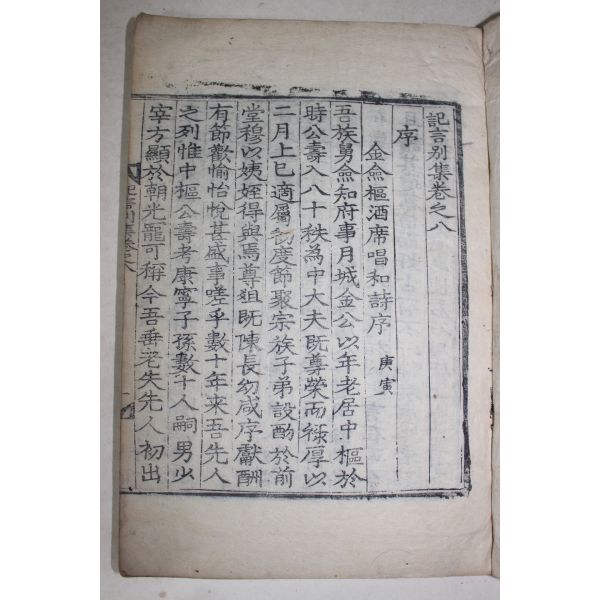 記言別集卷之八
序
金僉樞酒席唱和詩序 庚寅
吾族舅僉知府事月城金公以年老居中樞於
時公壽入八十秩為中大夫既尊榮而祿厚以
二月上巳適屬初度節聚宗族子弟設酌於前
堂穆以姨姪得與焉尊俎既陳長幼咸序獻酬
有節歡愉怡悅甚盛事嗟乎數十年来吾先人
之列惟中樞公壽考康寧子孫數十人嗣男少
宰方顯於朝光寵可稱今吾垂老失先人初出
記言別集卷之八